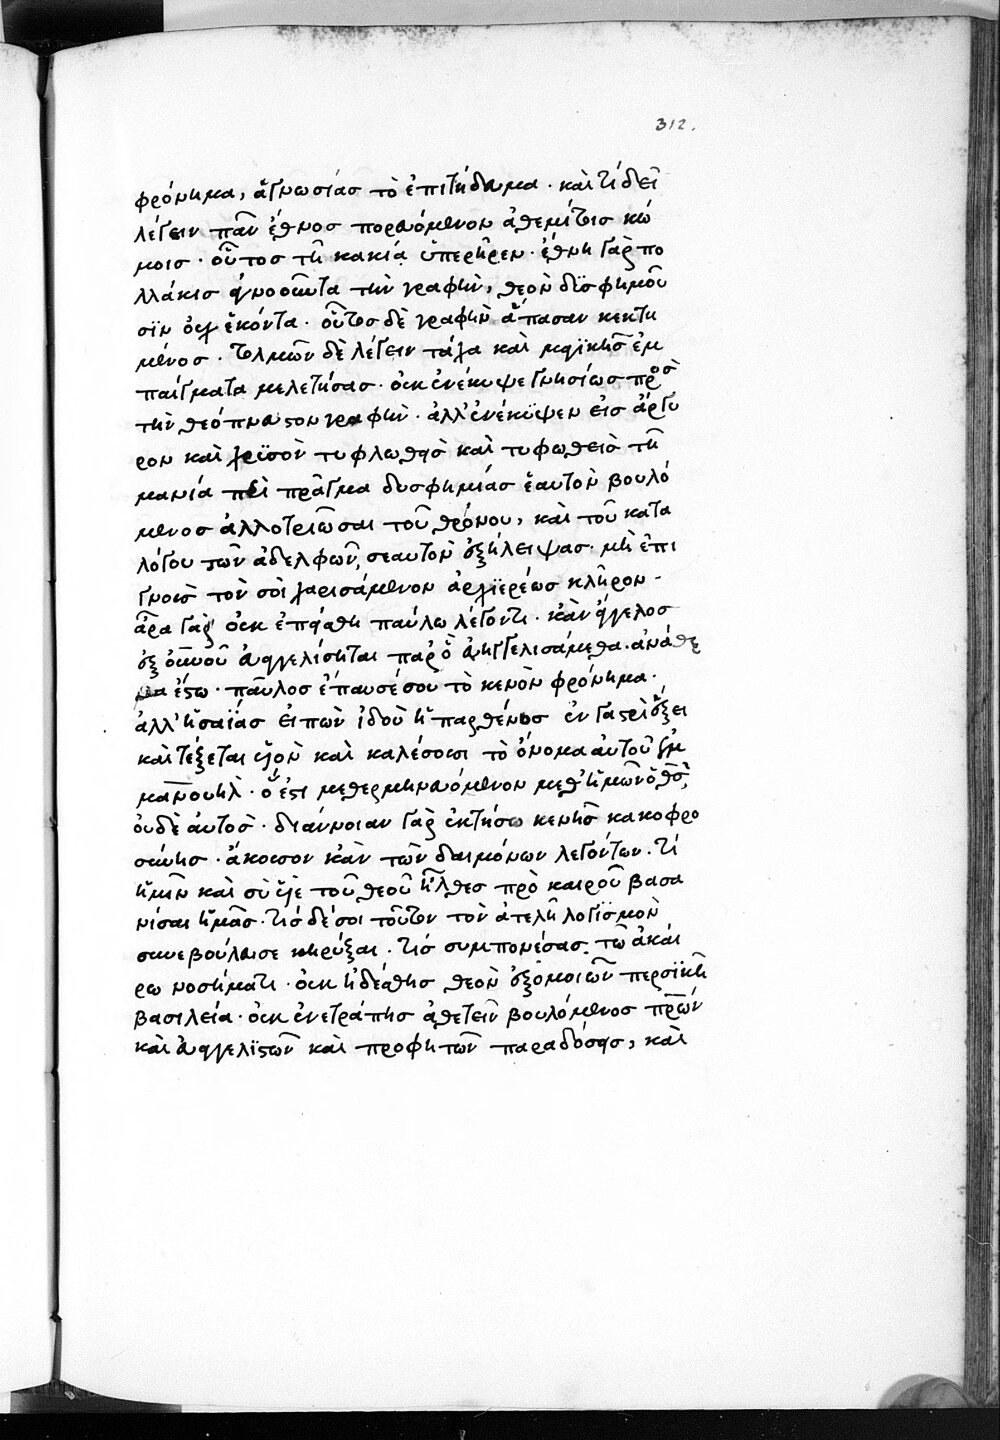 312.
φρόνημα, ἀγνωσίας τὸ ἐπιτήδευμα · καὶ τί δεῖ
λέγειν πᾶν ἔθνος πορευόμενον ἀθεμίτοις κώ
μοις · οὗτος τῆ κακία ὑπερῆρεν · ἔθνη γὰρ πο
λλάκις ἀγνοοῦντα τὴν γραφὴν, θεὸν δϊσφημοῦ
σϊν οὐχ ἑκόντα · οὗτος δὲ γραφὴν ἅπασαν κεκτη
μένος · τολμῶν δὲ λέγειν τάχα καὶ μαϊκῆς ἐμ
παίγματα μελετήσας · οὐκ ἐνέκυψε γνησίως πρὸς
τὴν θεόπνευστον γραφὴν · ἀλλ' ἐνέκϋψεν εἰς ἄργυ
ρον καὶ χρϋσὸν τυφλωθεὶς καὶ τυφωθεὶς τῆ
μανία περὶ πρᾶγμα δυσφημίας ἑαυτὸν βουλό
μενος ἀλλοτριῶσαι τοῦ θρόνου, καὶ τοῦ κατα
λόγου τῶν ἀδελφῶν, σεαυτὸν ἐξήλειψας · μὴ ἐπι
γνοὺς τὸν σοὶ χαρισάμενον ἀρχϊερέως κλῆρον ·
ἆρα γὰρ οὐκ ἐπείσθη παύλω λέγοντι · κἂν ἄγγελος
ἐξ οὐνοῦ εὐαγγελίσηται παρ' ὃ εὐηγγελισάμεθα · ἀνάθε
μα ἔστω · παῦλος ἔπαυσέ σου τὸ κενὸν φρόνημα ·
ἀλλ' ἡσαΐας εἰπὼν ἰδοὺ ἡ παρθένος ἐν γαστρὶ ἕξει
καὶ τέξεται υἱὸν καὶ καλέσουσι τὸ ὄνομα αὐτοῦ ἐμ
μανουὴλ · ὅ ἐστι μεθερμηνευόμενον μεθ' ἡμῶν ὁ θς,
οὐδὲ αὐτὸς · διάννοιαν γὰρ ἐκτήσω κενῆς κακοφρο
σύνης · ἄκουσον κἂν τῶν δαιμόνων λεγόντων · τί
ἡμῖν καὶ σὺ υἱὲ τοῦ θεοῦ ἦλθες πρὸ καιροῦ βασα
νίσαι ἡμᾶς · τίς δέ σοι τοῦτον τὸν ἀτελῆ λογϊσμὸν
συνεβούλευσε κηρύξαι · τίς συμπονέσας τῶ ἀκαί
ρω νοσήματι · οὐκ ἠδέσθης θεὸν ἐξομοιῶν περσϊκῆ
βασιλεία · οὐκ ἐνετράπης ἀθετεῖν βουλόμενος πρῶν
καὶ εὐαγγελϊστῶν καὶ προφητῶν παραδόσεις, καὶ